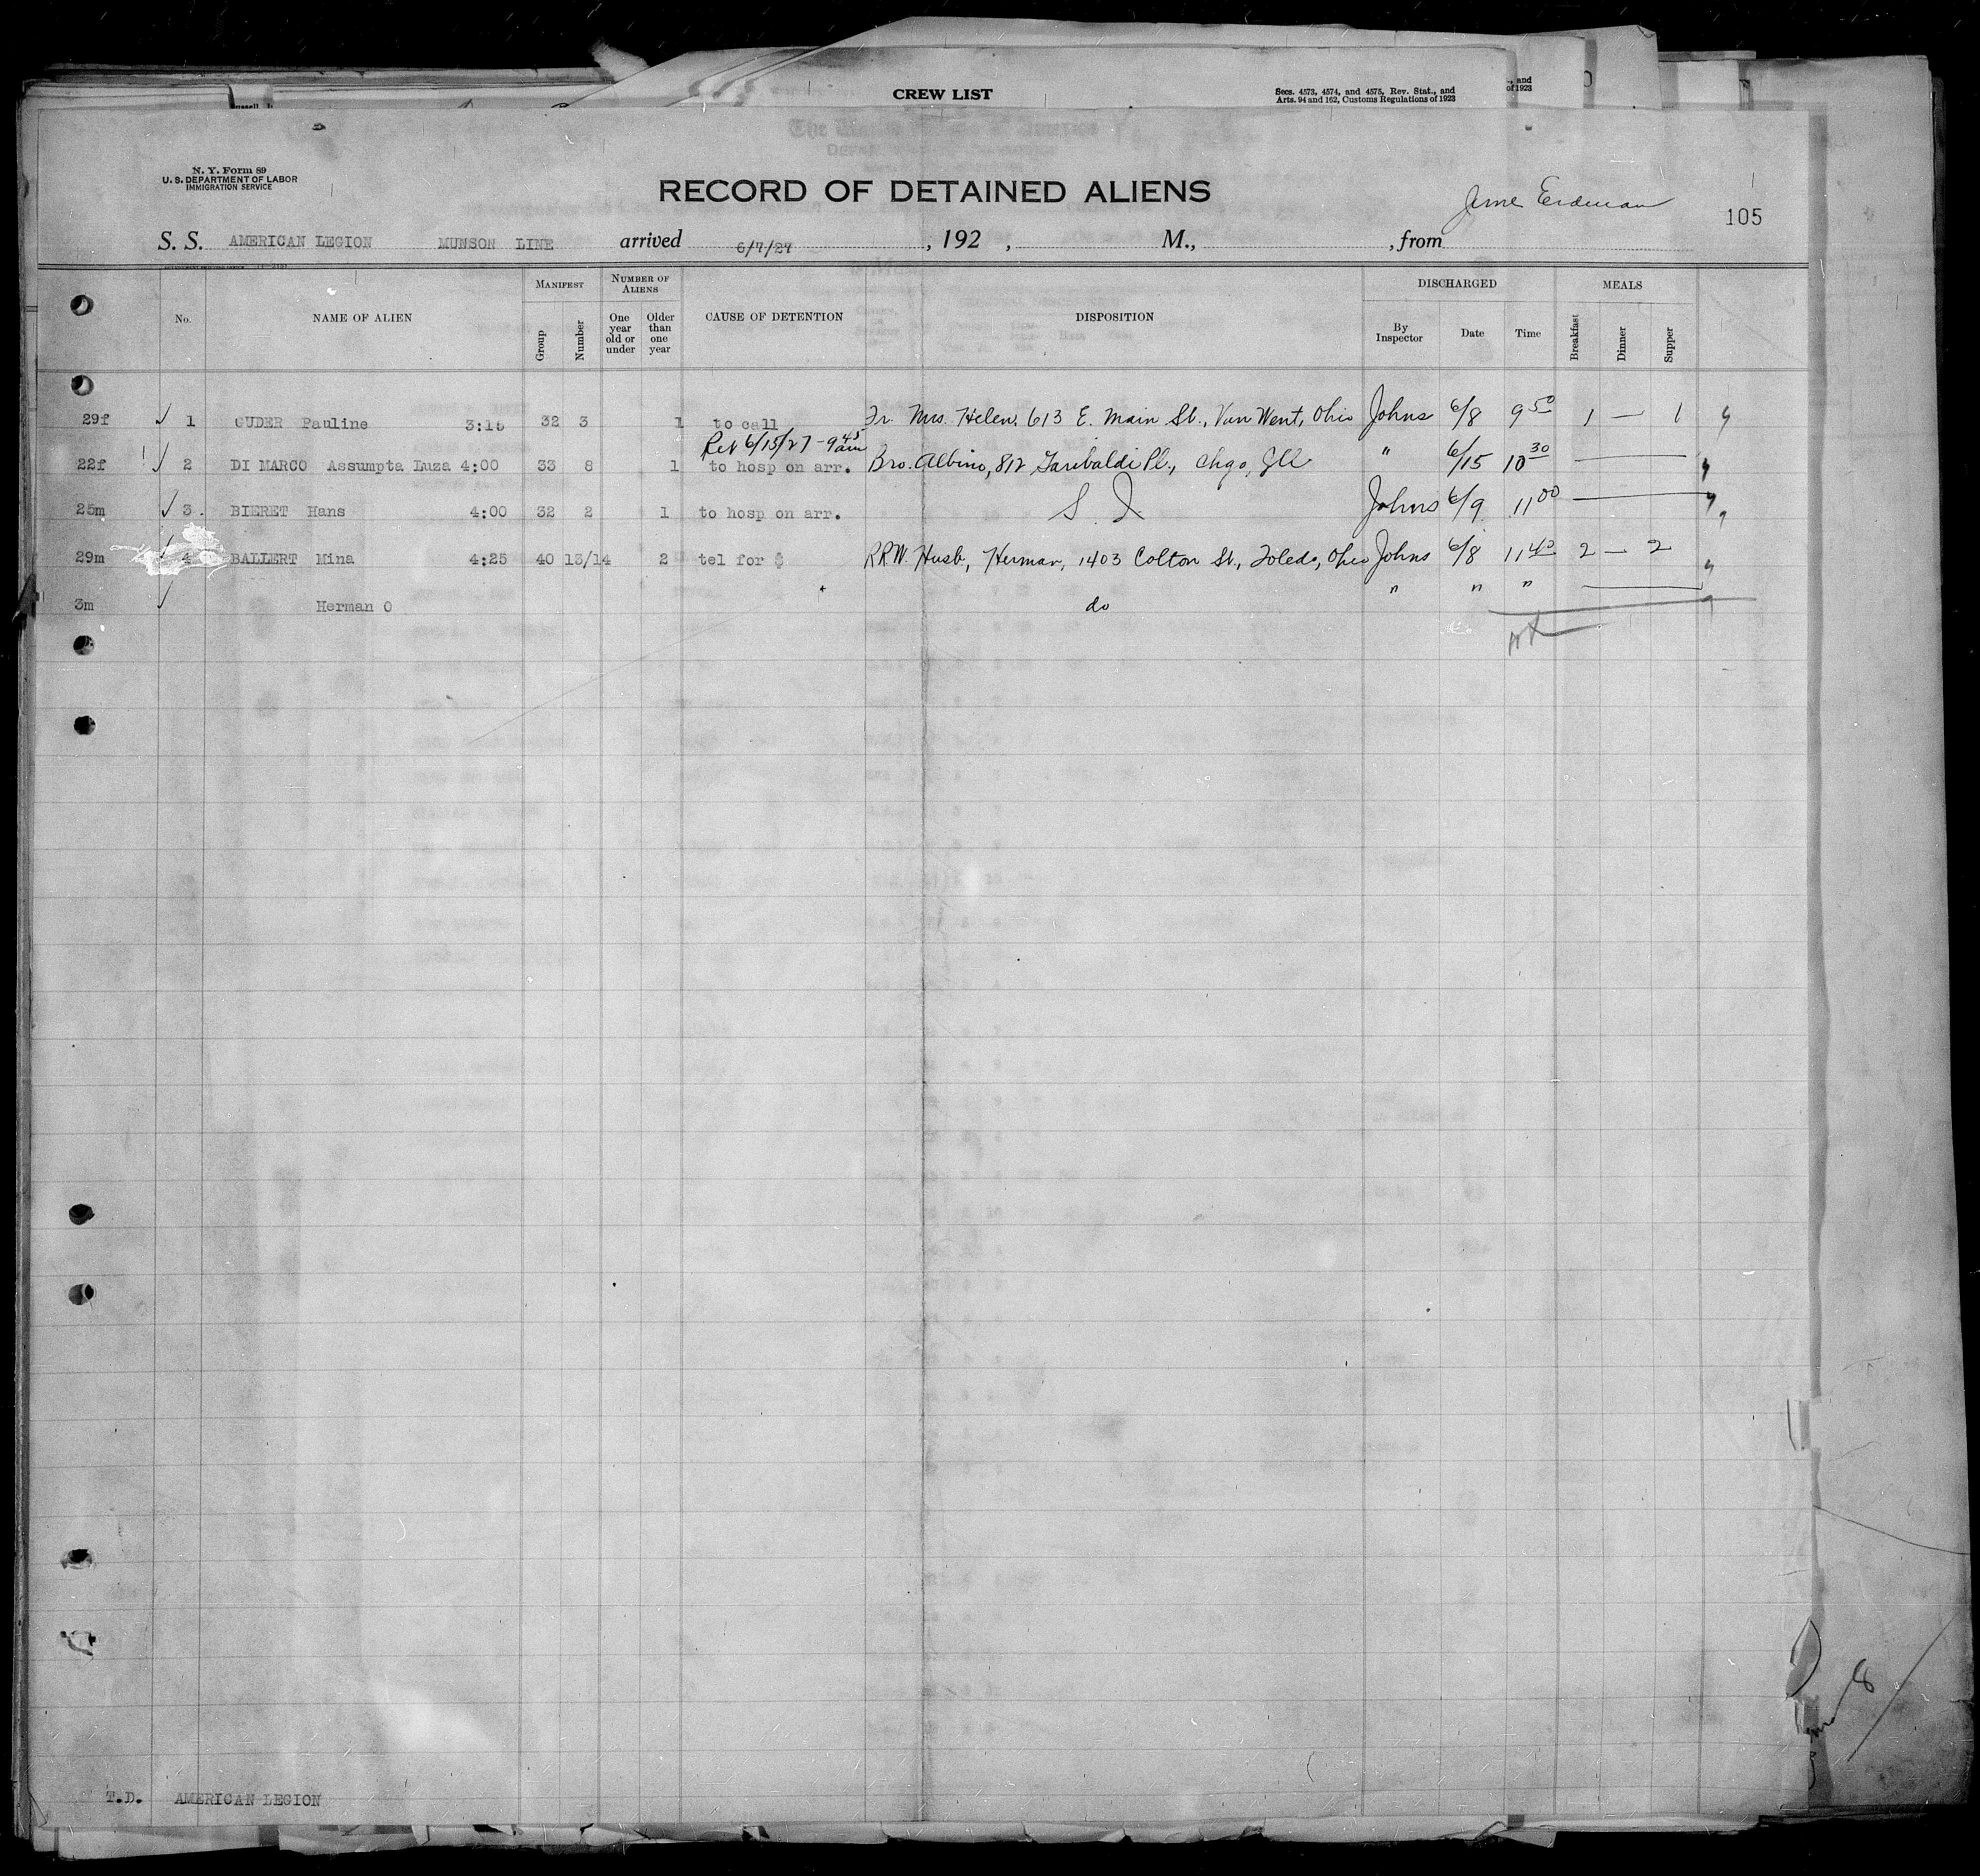 CREW LIST
Secs. 4573, 4574, and 4575, Rev. Stat., and
Arts. 94 and 162, Customs Regulations of 1923
and
of 1923
N. Y. Form 89
U. S. DEPARTMENT OF LABOR
IMMIGRATION SERVICE
RECORD OF DETAINED ALIENS
Erdman
105
S. S. AMERICAN LEGION MUNSON LINE arrived 6/7/27, 192 , M., , from
No. NAME OF ALIEN MANIFEST Group Number NUMBER OF ALIENS One year old or under Older than one year CAUSE OF DETENTION DISPOSITION DISCHARGED By Inspector Date Time MEALS Breakfast Dinner Supper
29f 1 GUDER Pauline 3:15 32 3 1 to call Fr. Mrs. Helen, 613 E. Main St., Van Went, Ohio Johns 6/8 9 50 1 — 1
Rev 6/15/27 - 9 45 am
22f 2 DI MARCO Assumpta Luza 4:00 33 8 1 to hosp on arr. Bro. Albino, 812 Garibaldi Pl., Chgo, Ill " 6/15 10 30
25m 3. BIERET Hans 4:00 32 2 1 to hosp on arr. S. I. Johns 6/9 11 00
29m 4 BALLERT Mina 4:25 40 13/14 2 tel for $ RRW. Husb, Herman, 1403 Colton St., Toledo, Ohio Johns 6/8 11 40 2 — 2
3m Herman O do " " "
T.D. AMERICAN LEGION
8